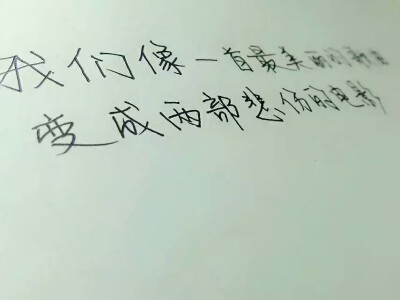 我们像一首最美丽的歌曲
变成两部悲伤的电影